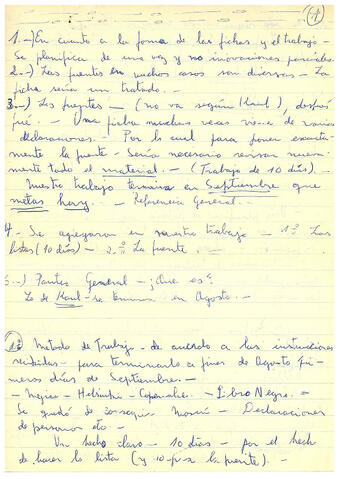 (1)
1.-) En cuanto a la forma de las fichas y el trabajo -
Se planifica de una vez y no inovaciones parciales.
2.-) Las fuentes en muchos casos son diversas - La
ficha sería un tratado. -
3.-) Las fuentes - (no va según Raul), despos
pué. - Una ficha muchas veces viene de varias
declaraciones. - Por lo cual para poner exacta-
mente la fuente - Sería necesario revisar nueva-
mente todo el material. - (Trabajo de 10 días). -
Nuestro trabajo termina en Septiembre que
metas hay. - Referencia General. -
4.- Se agregaron en nuestro trabajo - 1º Las
listas (10 días) - 2º La fuente. -
5.-) Pautas General - ¿Que es?
Lo de Raul - se termina en Agosto. -
1º Metodo de Trabajo - de acuerdo a las intrucciones
recibidas - para terminarlo a fines de Agosto
días de Septiembre. -
- Negra - Helsinki - Copenahe. - Libro Negro. =
Se quedó de conseguir - Declaraciones
de personas etc. -
Un hecho claro - 10 días - por el hech
de hacer la lista (y 10 para la fuente). -